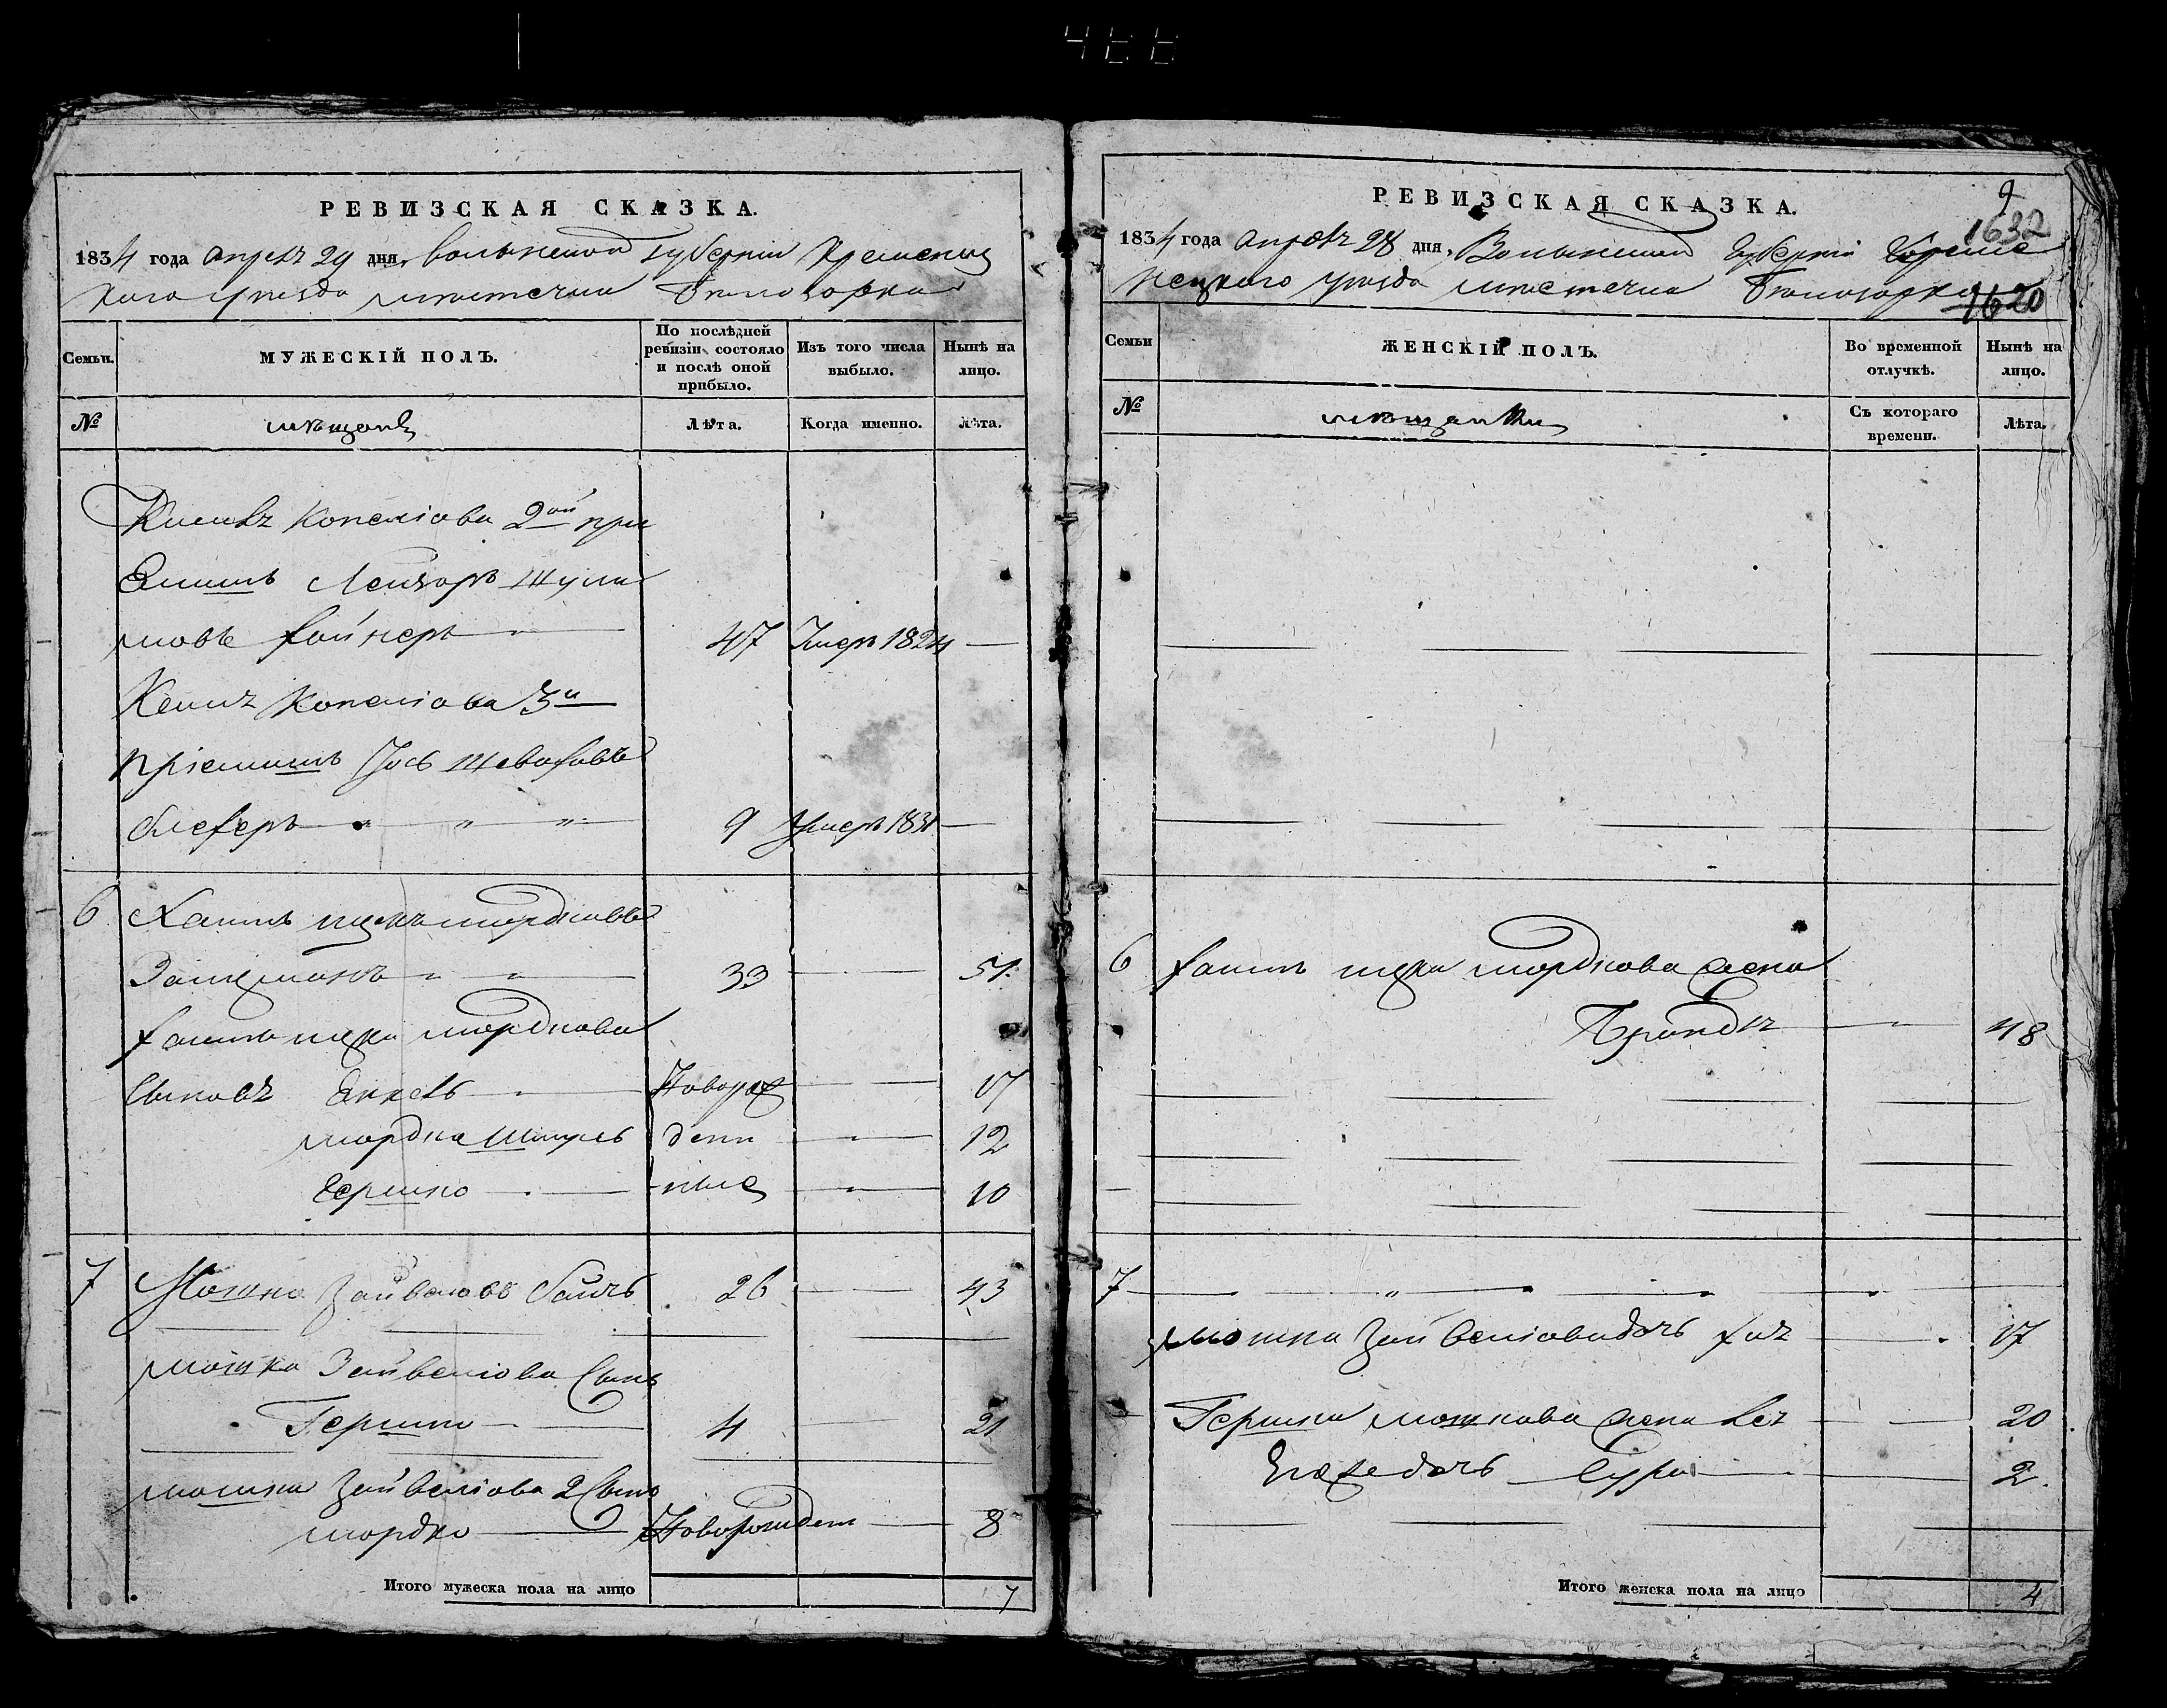 РЕВИЗСКАЯ СКАЗКА.
1834 года апреля 29 дня, волынской Губернии Кременец
кого уезда местечка Белозорка
Семьи.
МУЖЕСКІЙ ПОЛЪ.
По послѣдней
ревизіи состояло
и послѣ оной
прибыло.
Изъ того числа
выбыло.
Нынѣ на
лицо.
№
мещане
Лѣта.
Когда именно.
Лѣта.
Копелiова 2ой при
Емышъ Лейзоръ Шули
мовъ
47 Умеръ 1824
Копелiова 3й
Прiемышъ Іось
9 Умеръ 1831
6 Хаимъ Ицекъ Мордковъ
33 51
Хаимъ Ицка Мордкова
Сыновя Янкель Новорож 17
Мордка Шмуль денн 12
Гершко ные 10
7 Мошко Зайвеловъ 26 43
Мошка Зайвелiова Сынъ
Гершко 4 21
Мошка Зайвелiова 2 Сынъ
Мордко Новорожден 8
Итого мужеска пола на лицо 7
РЕВИЗСКАЯ СКАЗКА.
9
1632
1834 года апреля 28 дня, Волынской Губернiи Креме
нецкого уезда местечка Белозорка
1620
Семьи
ЖЕНСКІЙ ПОЛЪ.
Во временной
отлучкѣ.
Нынѣ на
лицо.
№
мещанки
Съ котораго
времени.
Лѣта.
6 Хаимъ Ицка Мордкова жена
48
7
Мошка Зайвелiова дочь Хая 17
Гершка Мошкова жена Лея 20
Его же дочь Сура 2
Итого женска пола на лицо 4